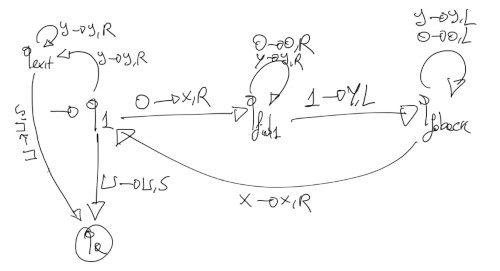 y→y, R
q exit
y→y, R
⊔→⊔,S
q 1
0→X,R
0→0,R
y→y,R
q find1
1→Y,L
y→y,L
0→0,L
q goback
⊔→⊔,S
X→X,R